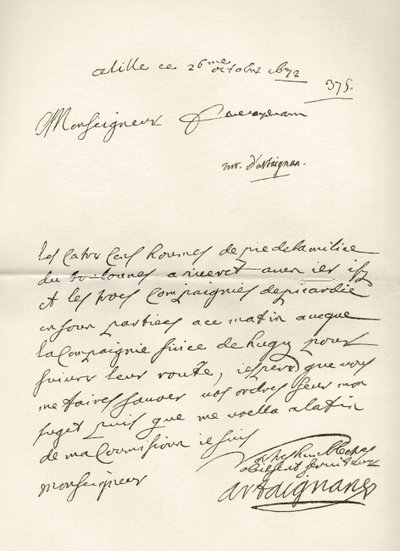 alille ce 26eme octobre 1672
375.
Monseigneur
mr. d'artaignan.
les catre cens hommes de pie de la milice
du boulonnes ariveret avier ier isy
et les trois compaignies de picardie
en sont parties ce matin avecque
la compaignie suice de pour
suivre leur route, iespere que vous
me faires savoir vos ordres seur mon
suget puis que me voella alafin
de ma commission ie suis
monseigneur
vostre tres humble et tres
obeisant serviteur
artaignan